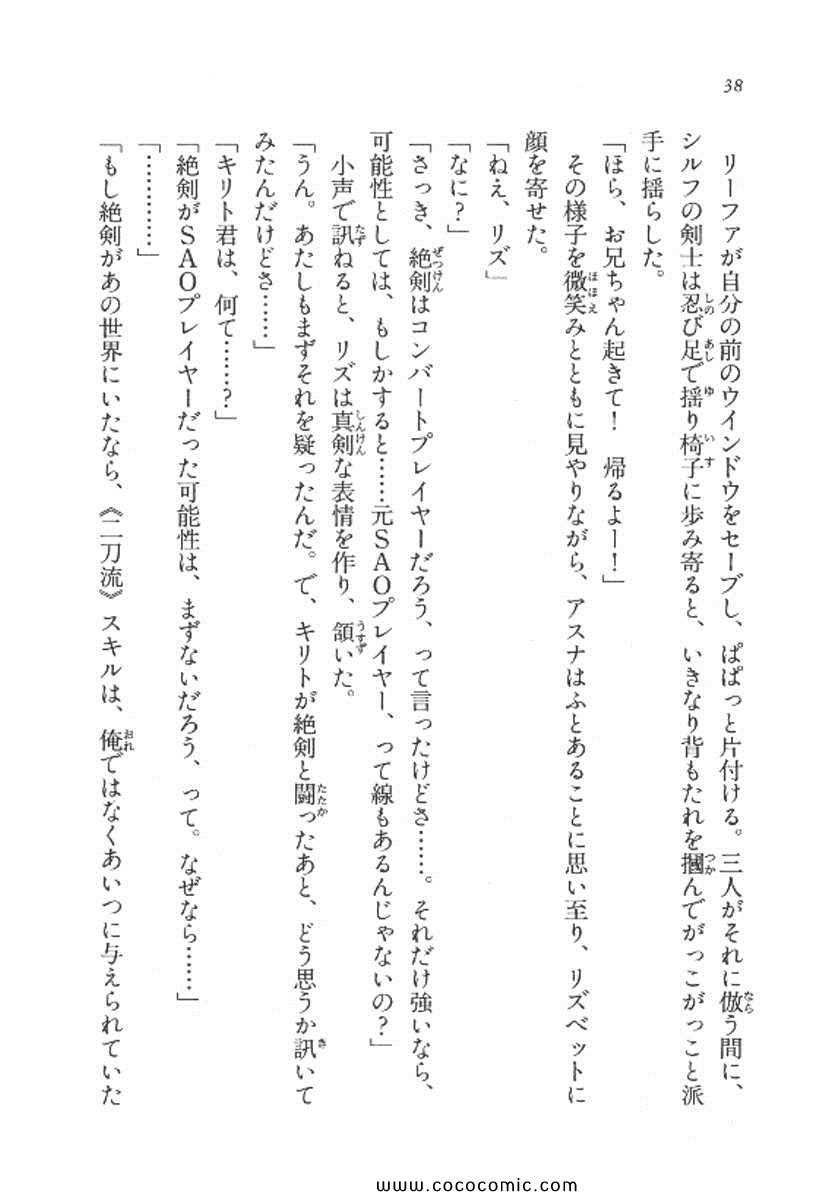 38
リーファが自分の前のウインドウをセーブし、ぱぱっと片付ける。三人がそれに倣う間に、
シルフの剣士は忍び足で揺り椅子に歩み寄ると、いきなり背もたれを摑んでがっこがっこと派
手に揺らした。
「ほら、お兄ちゃん起きて！　帰るよー！」
その様子を微笑みとともに見やりながら、アスナはふとあることに思い至り、リズベットに
顔を寄せた。
「ねえ、リズ」
「なに？」
「さっき、絶剣はコンバートプレイヤーだろう、って言ったけどさ……。それだけ強いなら、
可能性としては、もしかすると……元ＳＡＯプレイヤー、って線もあるんじゃないの？」
小声で訊ねると、リズは真剣な表情を作り、頷いた。
「うん。あたしもまずそれを疑ったんだ。で、キリトが絶剣と闘ったあと、どう思うか訊いて
みたんだけどさ……」
「キリト君は、何て……？」
「絶剣がＳＡＯプレイヤーだった可能性は、まずないだろう、って。なぜなら……」
「…………」
「もし絶剣があの世界にいたなら、《二刀流》スキルは、俺ではなくあいつに与えられていた
www.cococomic.com